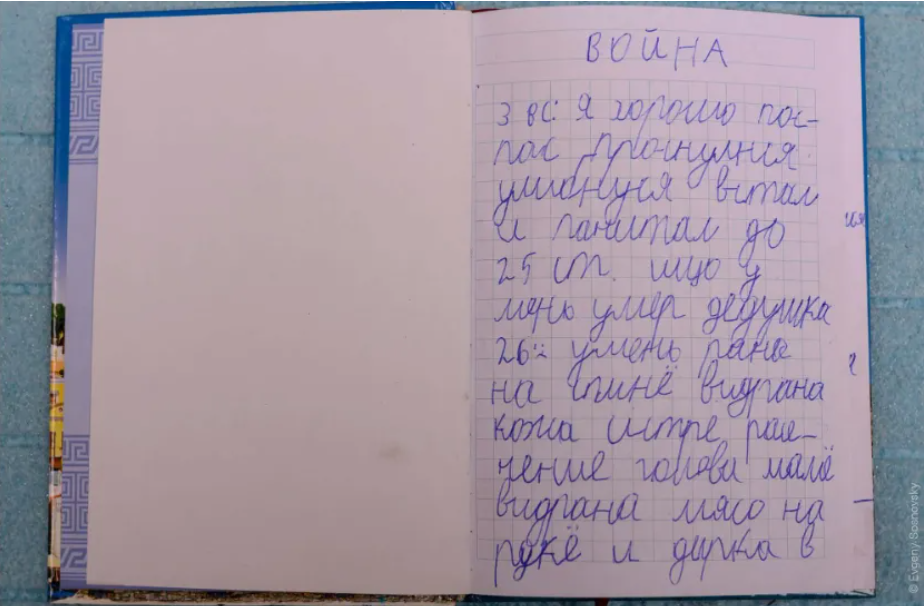 ВОЙНА
3 вс: Я хорошо пос-
пас проснулися
уліонуня встал
и пачитал до
25 ст. ищо у
мень умер дедушка
26:: умень рана
на спинё видрана
кожа истре расе-
чение голови малё
видрана мясо на
рукё и дирка в
© Evgeny Sosnovsky